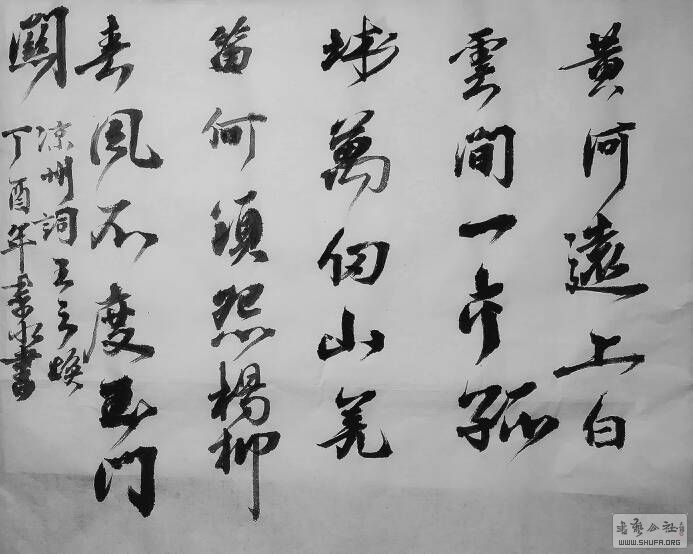 黄河遠上白
雲間一片孤
城萬仞山羌
笛何須怨楊柳
春風不度玉門
關
凉州詞王之煥
丁酉年書
书艺公社
WWW.SHUFA.ORG